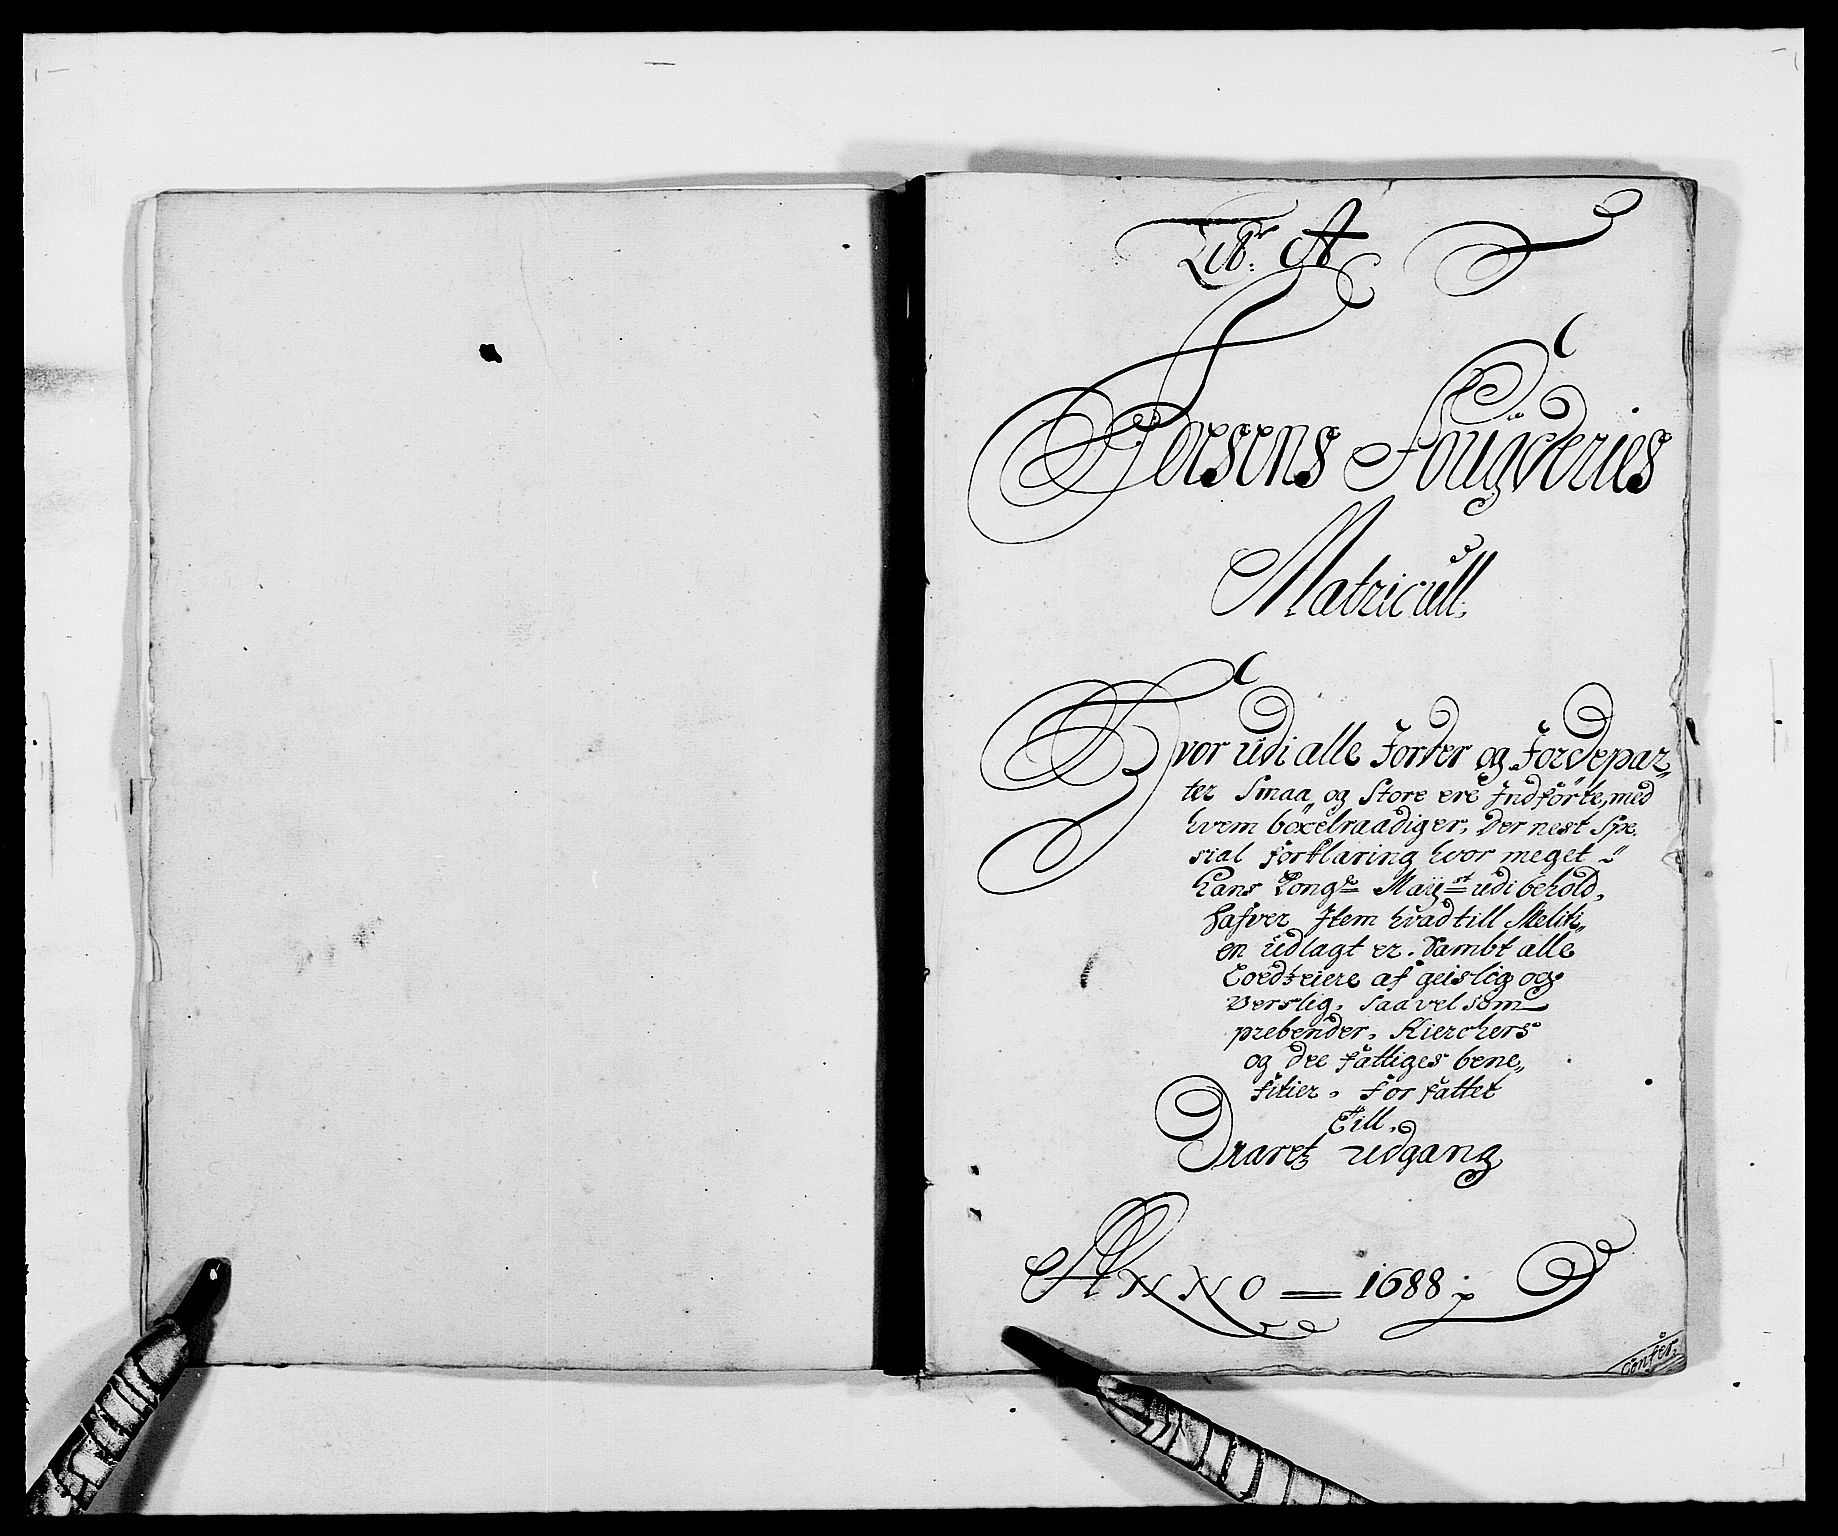 Litr: A
Fosens Fougderies
Matricull.
Hvor udi alle Jorder og Jordepar„
ter Smaa og Store ere Indförte, med
hvem böxelraadiger, Der nest Spe„
sial forklaring hvor meget
hans Kongl: Maÿst: udi behold,
hafver Item hvad till Melitz„
en udlagt er. Sambt alle
Lordzeiere af geislig og
Verslig, saavel som
prebender, Kierchers
og dee fattiges bene„
fitier, forfattet
Till.
Draret udgang
ANNO = 1688
Confer.